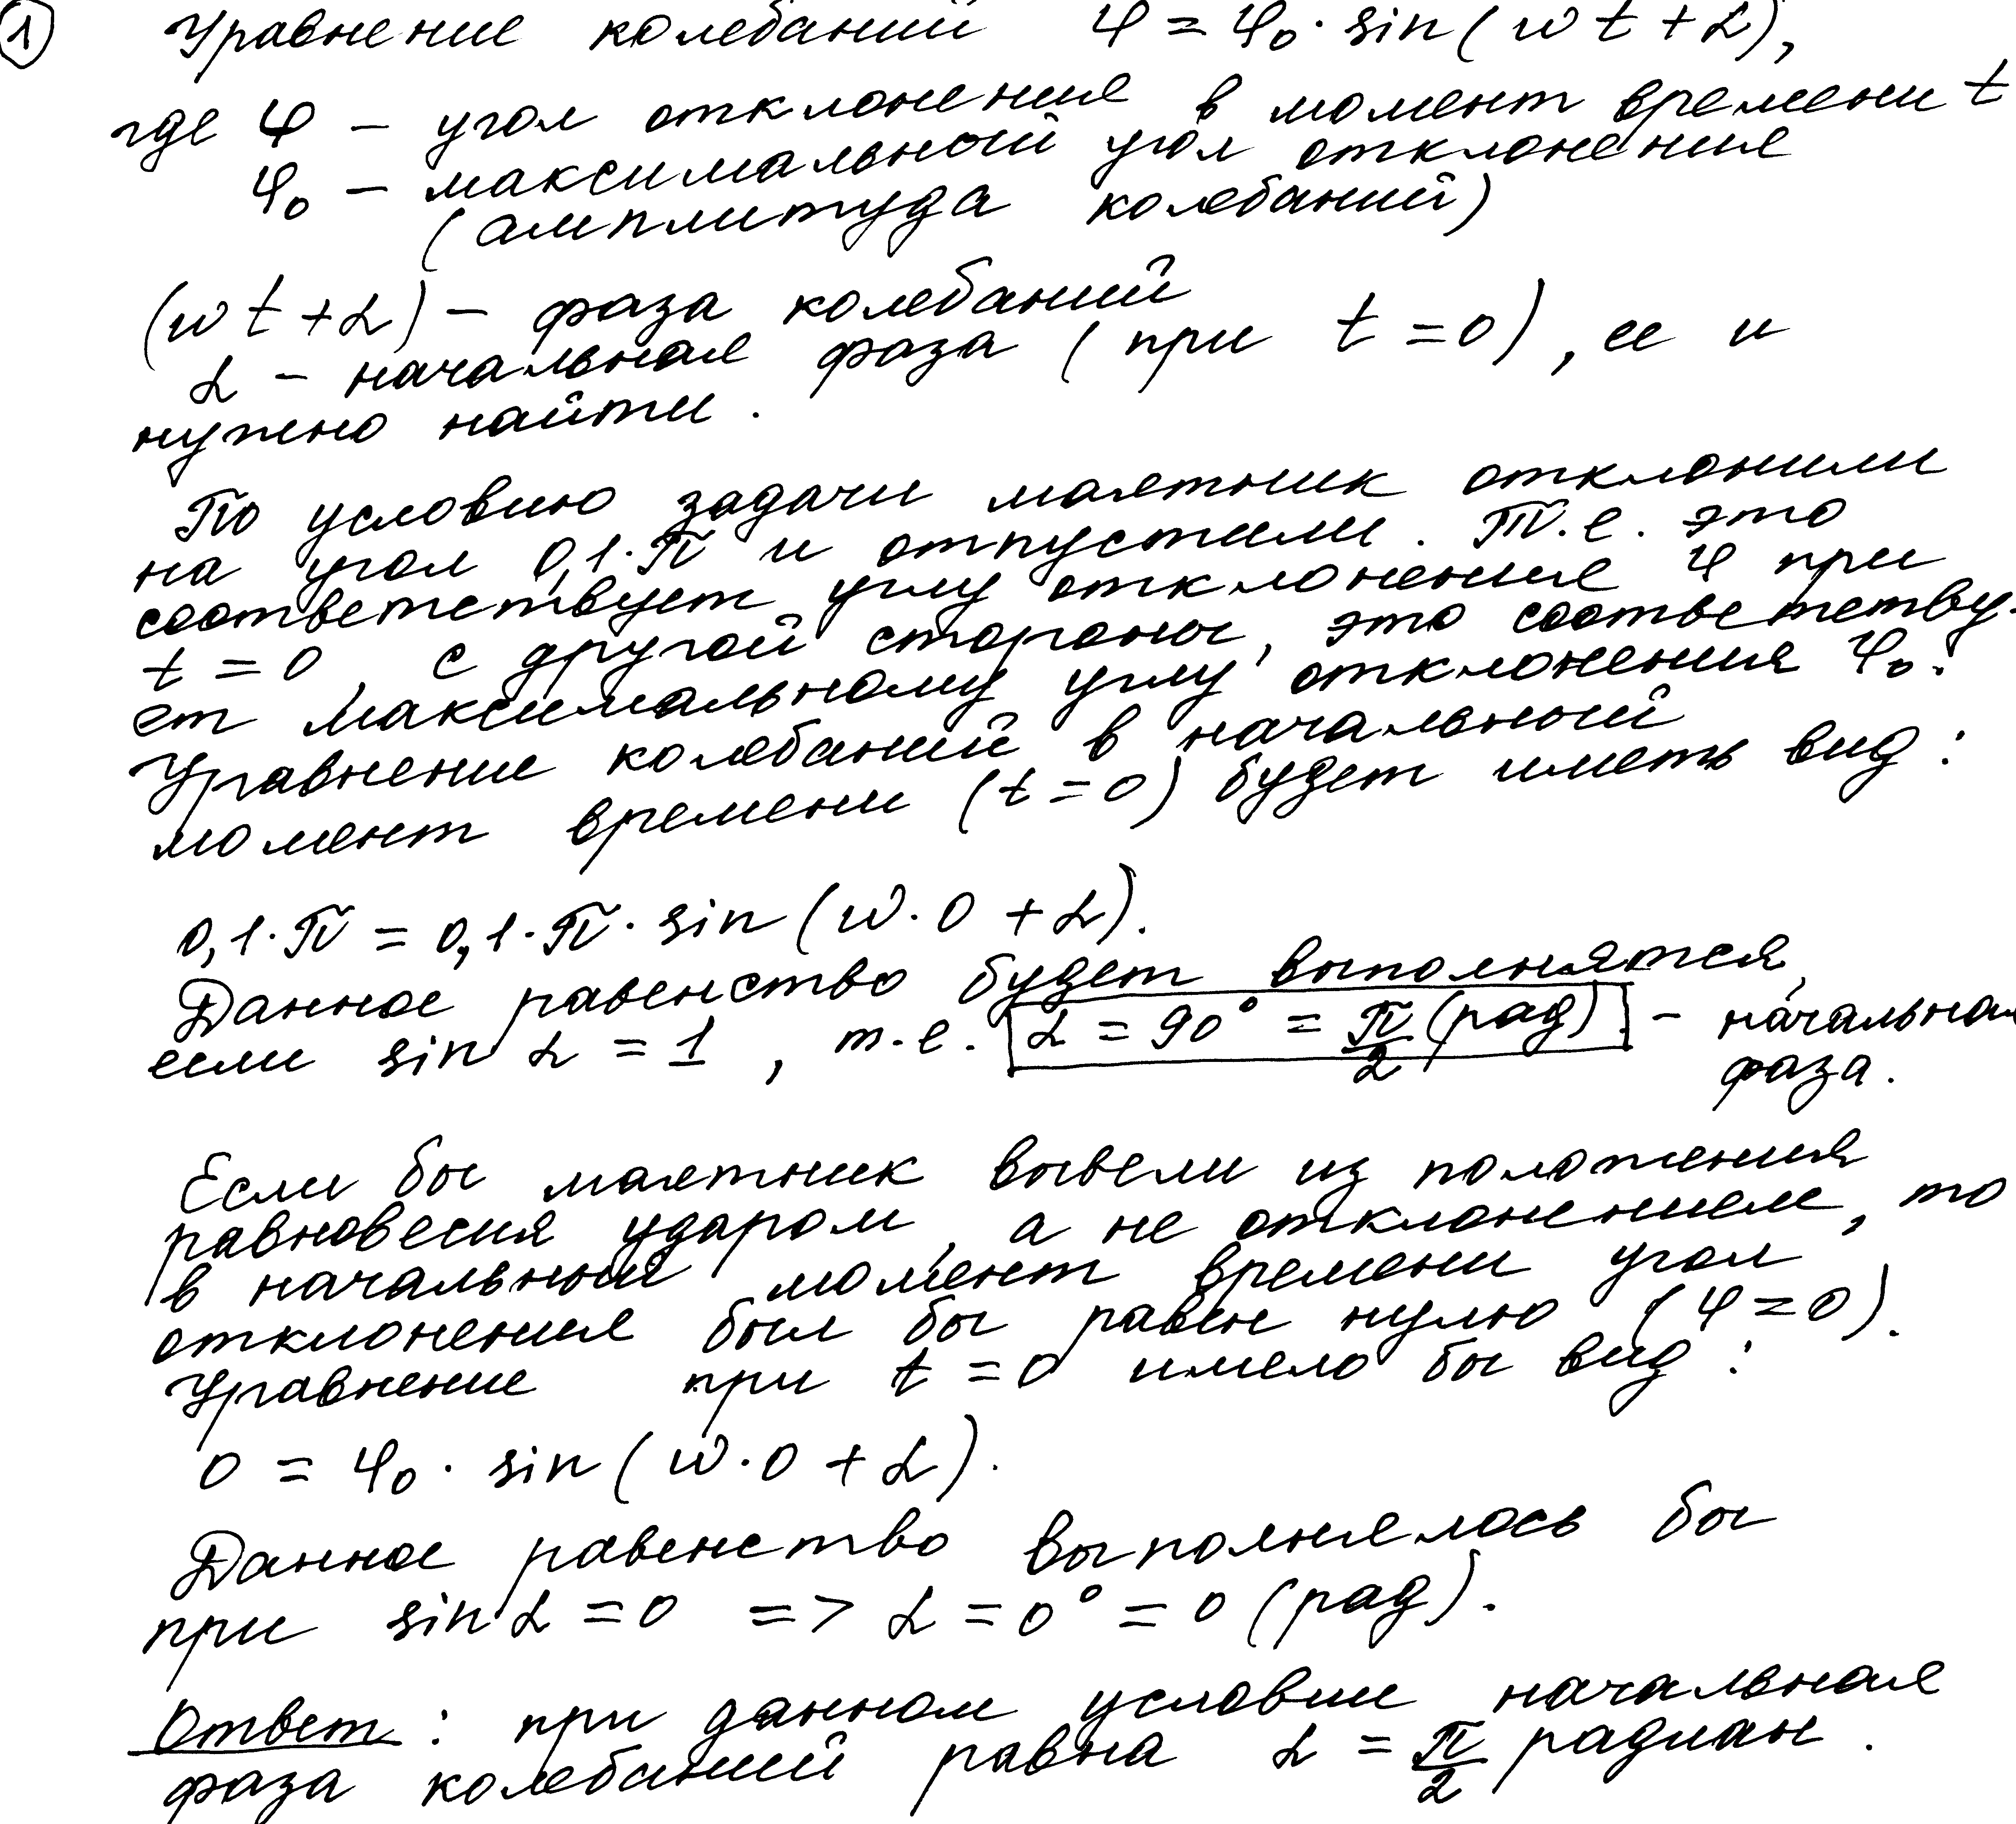 1 Уравнение колебаний φ = φ₀ · sin(ωt + α),
где φ – угол отклонения в момент времени t
φ₀ – максимальный угол отклонения
(амплитуда колебаний)
(ωt + α) – фаза колебаний
α – начальная фаза (при t = 0), ее и
нужно найти.
По условию задачи маятник отклонили
на угол 0,1·π и отпустили. Т.е. это
соответствует углу отклонения φ при
t = 0, с другой стороны, это соответству-
ет максимальному углу отклонения φ₀.
Уравнение колебаний в начальный
момент времени (t = 0) будет иметь вид:
0,1·π = 0,1·π·sin(ω·0 + α).
Данное равенство будет выполнятся,
если sin α = 1, т.е. α = 90° = π/2 (рад). – начальная
фаза.
Если бы маятник вывели из положения
равновесия ударом, а не отклонением, то
в начальный момент времени угол
отклонения был бы равен нулю (φ = 0).
Уравнение при t = 0 имело бы вид:
0 = φ₀ · sin(ω·0 + α).
Данное равенство выполнялось бы
при sin α = 0 => α = 0° = 0 (рад).
Ответ: при данном условии начальная
фаза колебаний равна α = π/2 радиан.